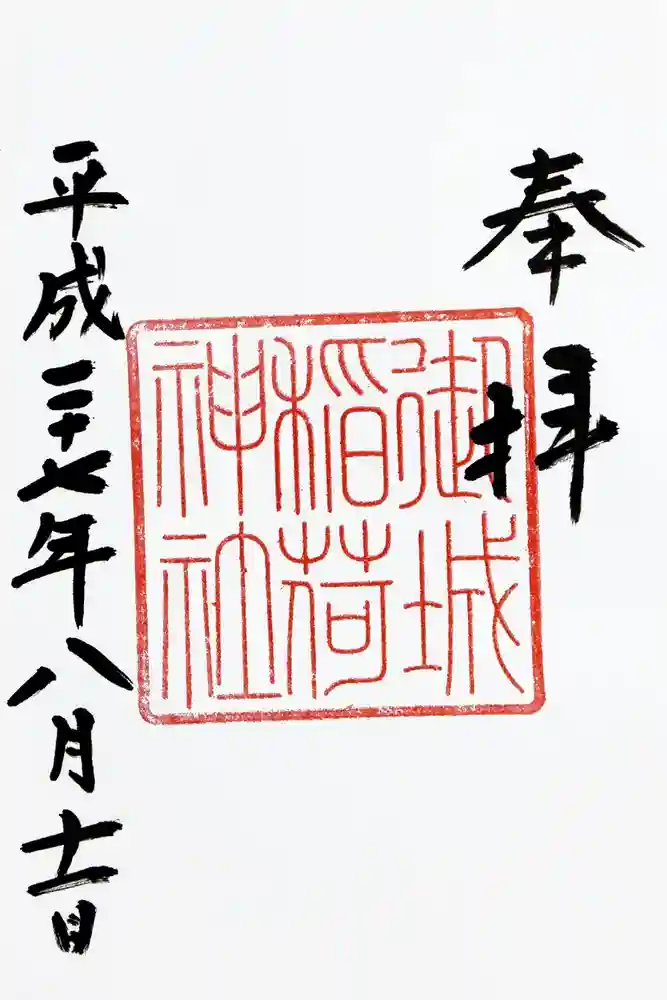 奉拝
御城
稲荷
神社
平成二十七年八月十一日